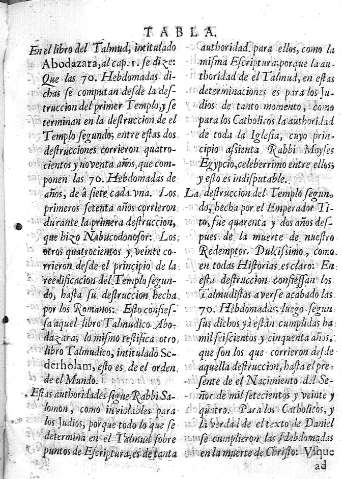 TABLA.
En el libro del Talmud, intitulado
Abodazara, al cap. 1. se dize:
Que las 70. Hebdomadas di-
chas se computan desde la des-
truccion del primer Templo, y se
terminan en la destruccion de el
Templo segundo, entre estas dos
destrucciones corrieron quatro-
cientos y noventa años, que com-
ponen las 70. Hebdomadas de
años, de á siete cada vna. Los
primeros setenta años corrieron
durante la primera destruccion,
que hizo Nabucodonosor: Los
otros quatrocientos y veinte co-
rrieron desde el principio de la
reedificacion del Templo segun-
do, hasta su destruccion hecha
por los Romanos: Esto confies-
sa aquel libro Talmudico Abo-
dazara; lo mismo testifica otro
libro Talmudico, intitulado Se-
derholam, esto es, de el orden
de el Mundo.
Estas authoridades sigue Rabbi Sa-
lomon, como inviolables para
los Judios, porque todo lo que se
determina en el Talmud sobre
puntos de Escriptura, es de tanta
authoridad para ellos, como la
misma Escriptura: porque la au-
thoridad de el Talmud, en estas
determinaciones es para los Ju-
dios de tanto momento, como
para los Catholicos la authoridad
de toda la Iglesia, cuyo prin-
cipio assienta Rabbi Moyses
Egypcio, celeberrimo entre ellos,
y esto es indisputable.
La destruccion del Templo segun-
do, hecha por el Emperador Ti-
to, fue quarenta y dos años des-
pues de la muerte de nuestro
Redemptor Dulcissimo, como
en todas Historias es claro: En
esta destruccion confiessan los
Talmudistas averse acabado las
70. Hebdomadas: luego segun
sus dichos yà estàn cumplidas ha
mil seiscientos y cincuenta años,
que son los que corrieron desde
aquella destruccion, hasta el pre-
sente de el Nacimiento del Se-
ñor de mil setecientos y veinte y
quatro. Para los Catholicos, y
la verdad de el texto de Daniel
se cumplieron las Hebdomadas
en la muerte de Christo: Vique
ad